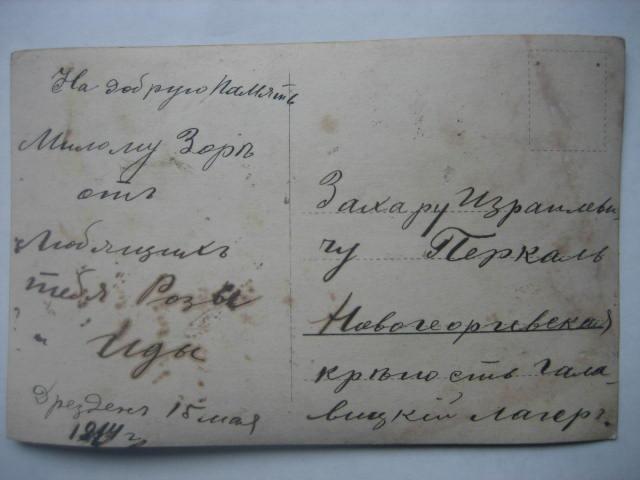 На добрую память
Милому Зоръ
отъ
Любящихъ
тебя Розы
Иды
Дрезденъ 15 мая
1914 г
Захару Израилеви
чу Перкаль
Новогеоргiевская
крѣпость Гала
вицкiй лагерь